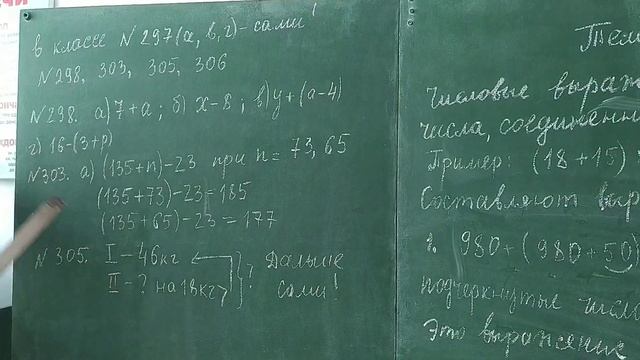 в классе N297(а, в, г) - сами!
N298, 303, 305, 306
N298. а) 7+a; б) x-8; в) y+(a-4)
г) 16-(3+p)
N303. а) (135+n)-23 при n = 73, 65
(135+73)-23=185
(135+65)-23=177
N305. I - 46кг
II - ? на 18кг
}?
Дальше
сами!
Числовые
числа,
Пример: (18+15)
Составляют
1. 980+(980+50)
подчеркнутые число
Это выражение